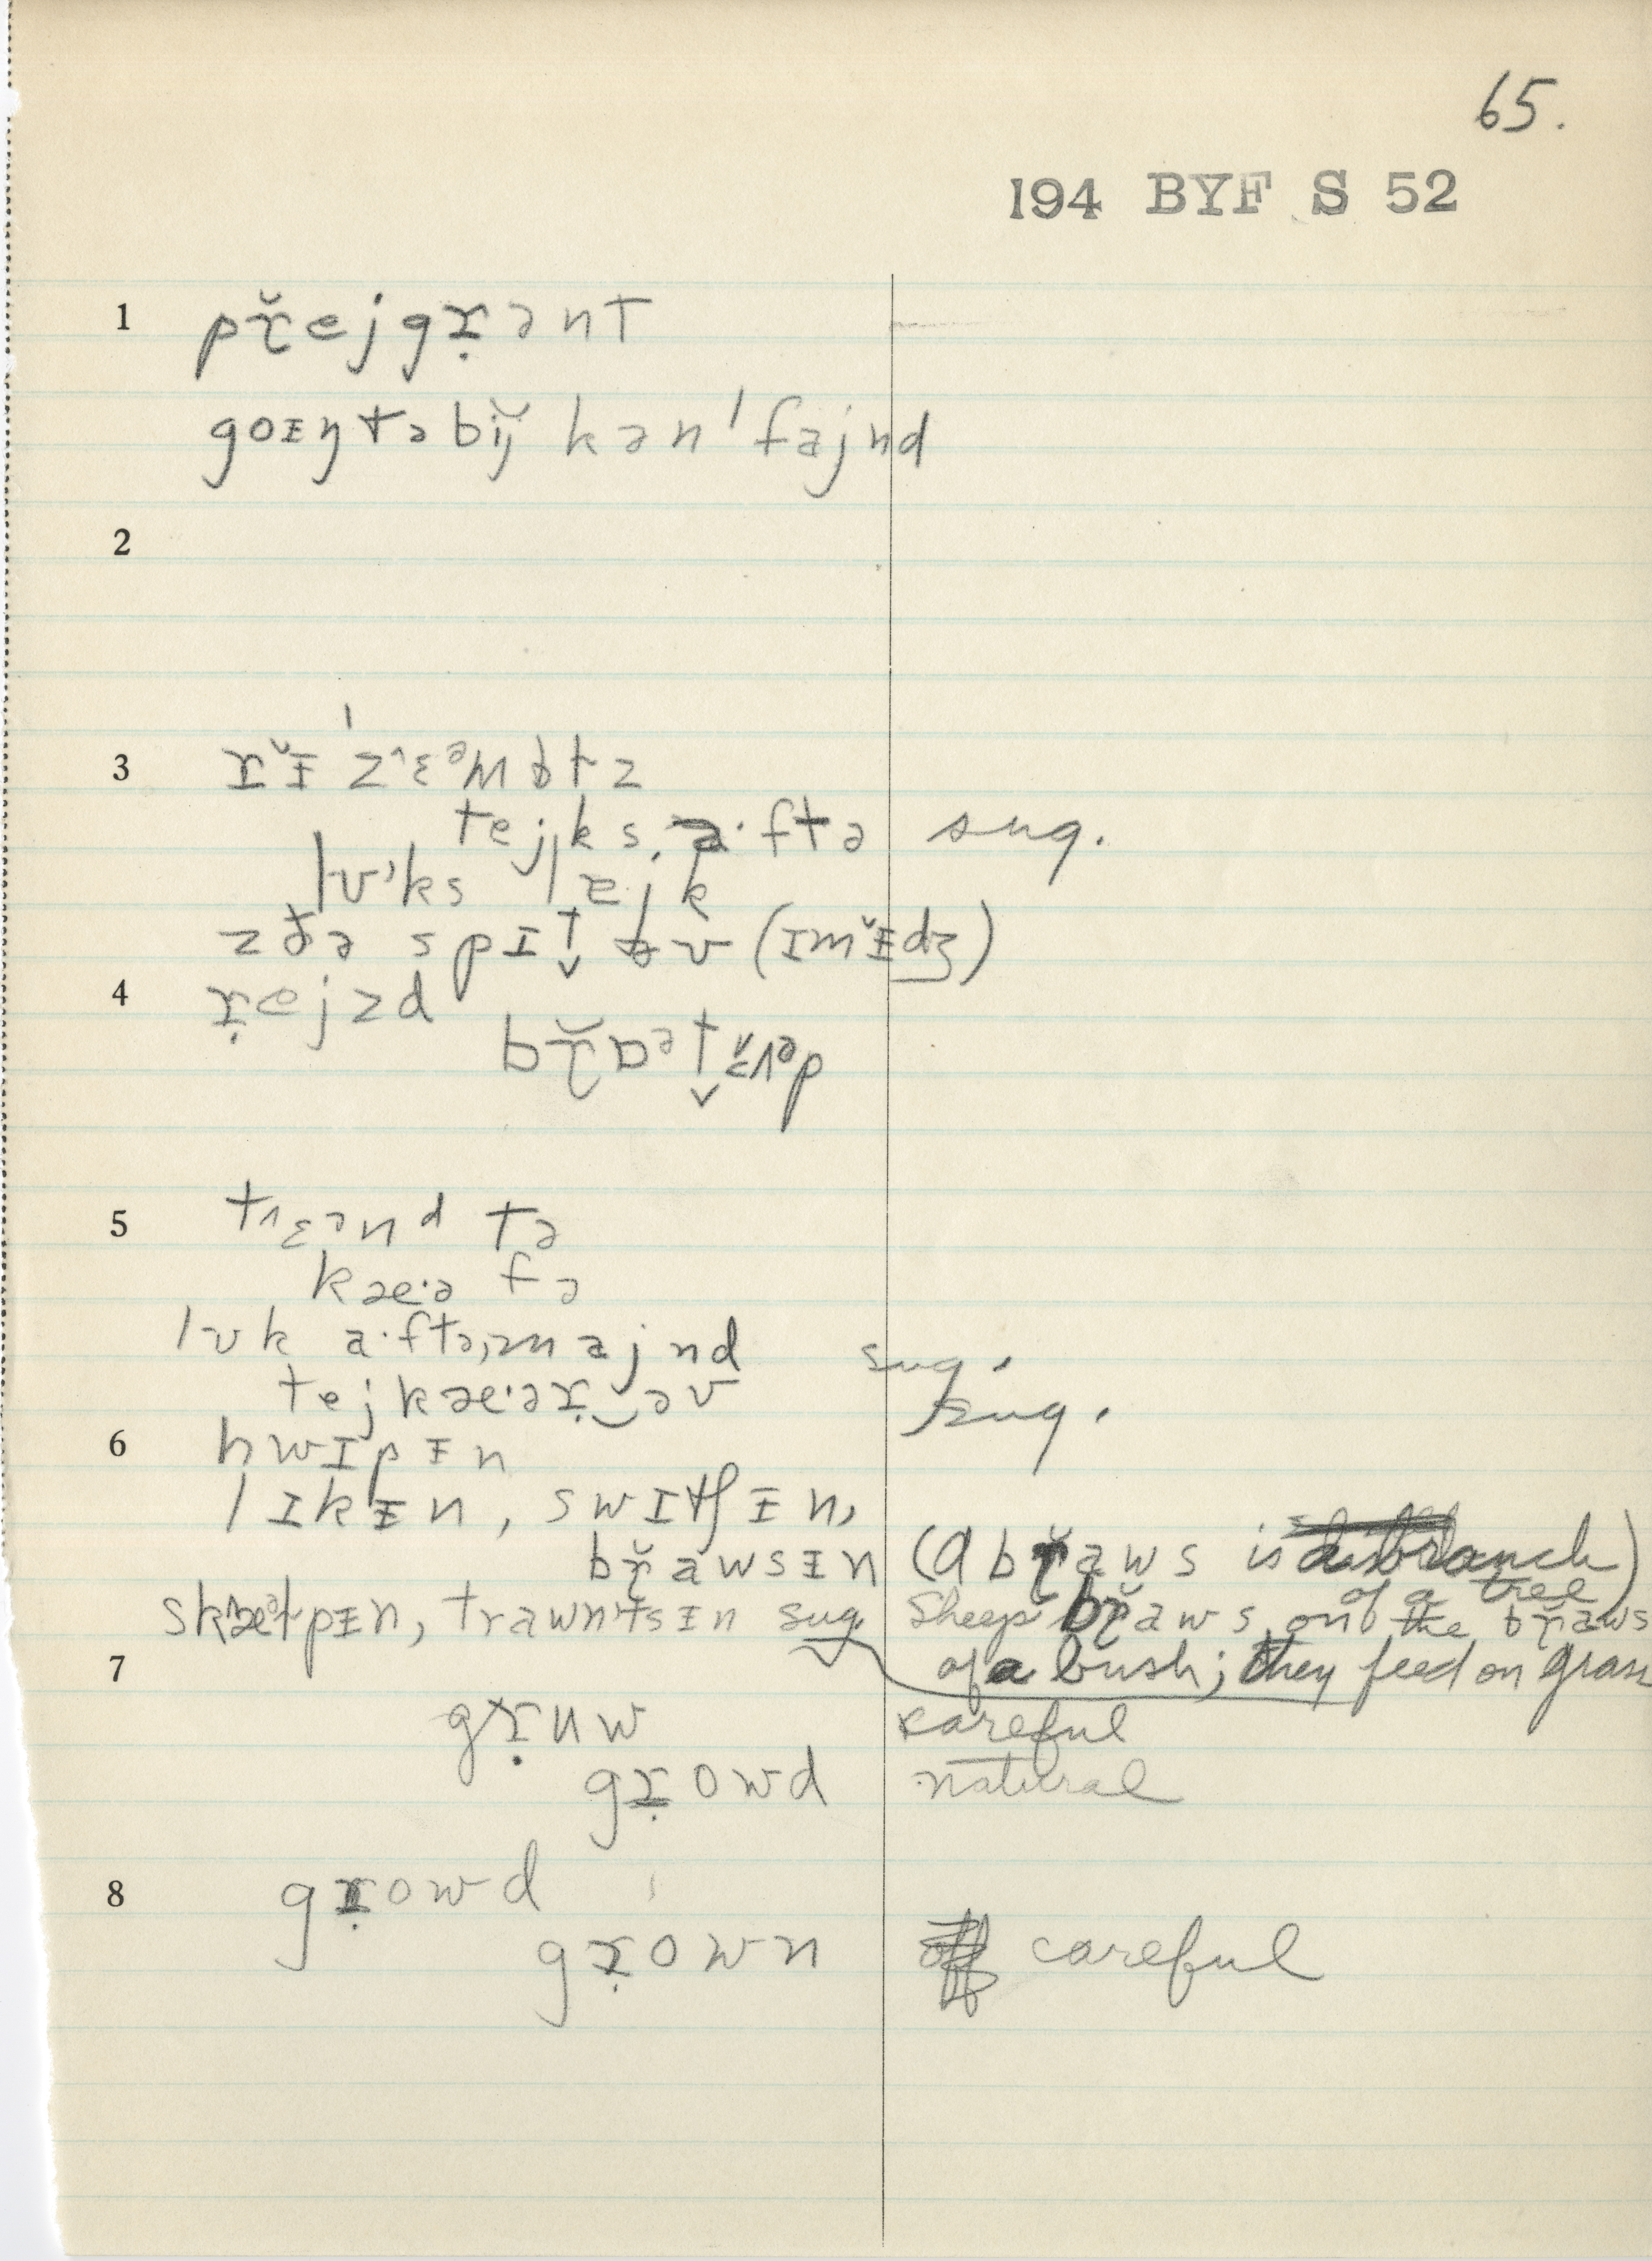 65.
194 BYF S 52
1 pɤ̆ejgɤ̣ənt
goᵻŋtəbɪj̆ kən'fajnd
2
3 ɤ̆ᵻ'z˄ɛᵊmbɫz
tejks, a·ftə sug.
lʊ'ks lɛjk
zðə spɪt əv (ɪm̆ᵻdʒ)
4 ɤ̣ejzd
bɤ̆ɒᵊt
5 t˄ɛənd tə
kæ·ə fə
lʊk a·ftə, majnd sug.
tejkæ·əɤ̣‿əv sug.
6 hwɪpᵻn
lɪkᵻn, swɪtʃᵻn,
bɤ̆awsᵻn (a bɤ̆aws is a branch)
of a tree
skæɫpᵻn, trawntsɪn sug. Sheep bɤ̆aws on the bɤ̆aws
7 of a bush; they feed on grass
gɤ̣uw careful
gɤ̣owd natural
8 gɤ̣owd
gɤ̣own careful